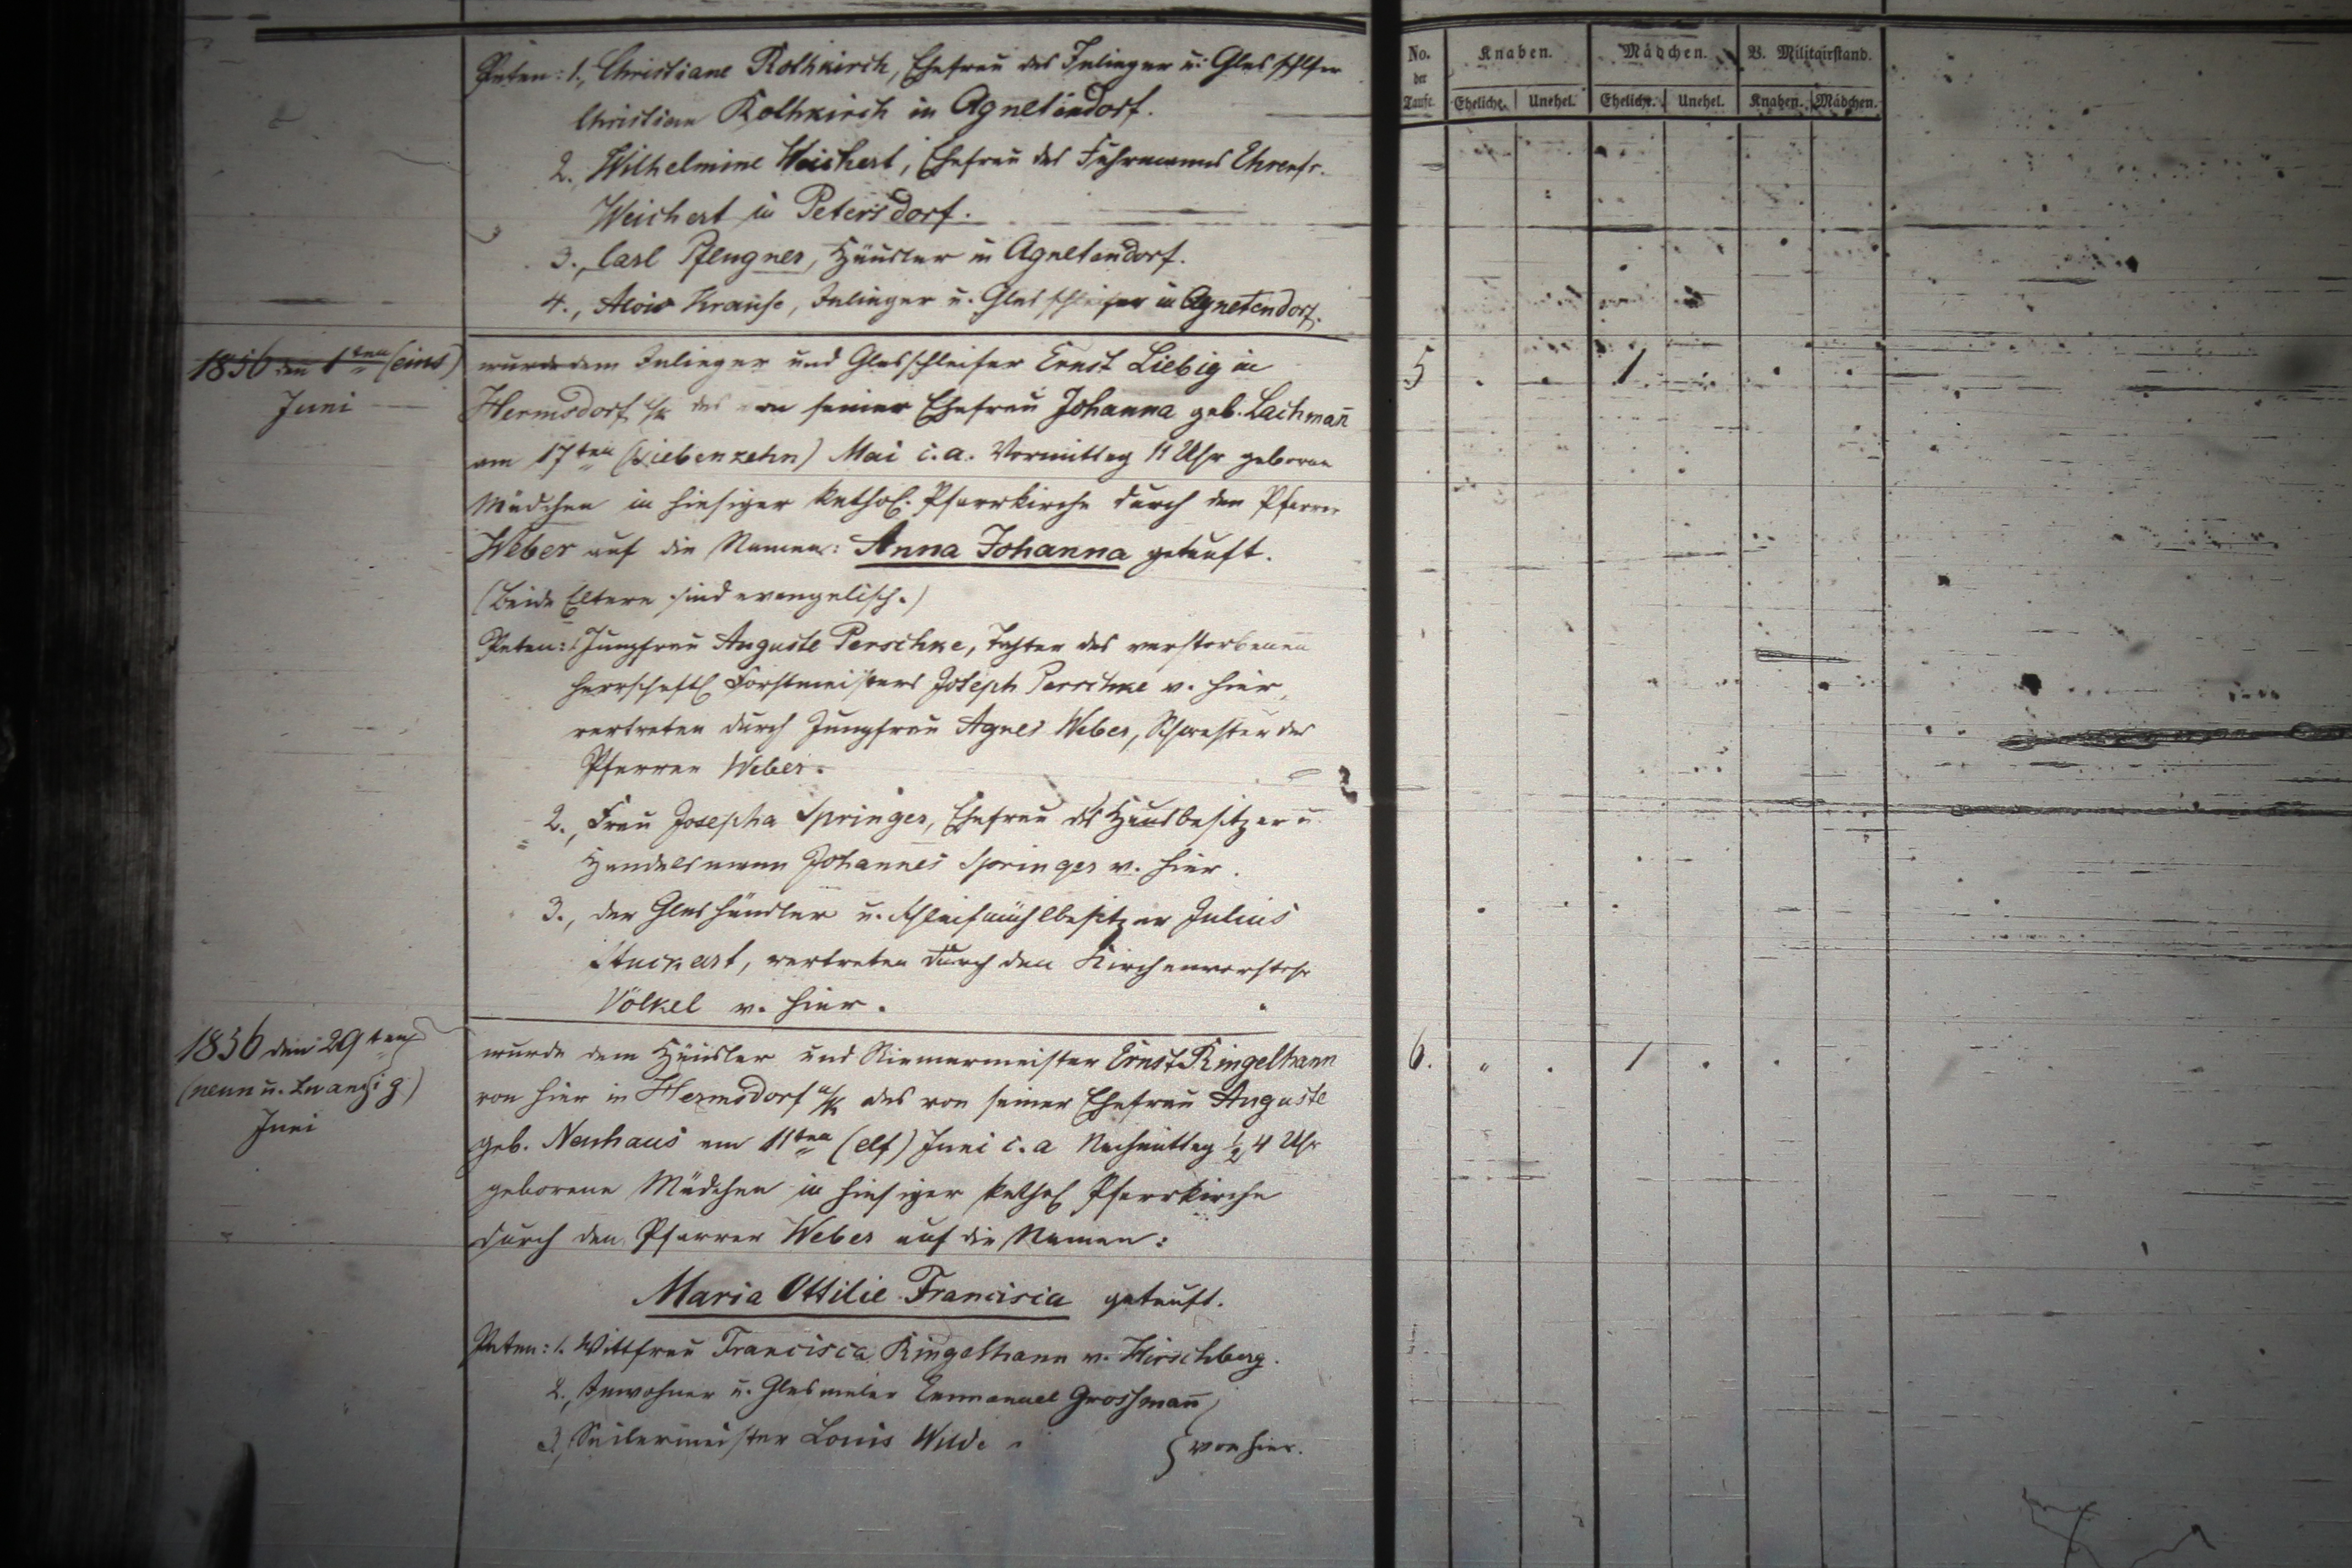 Paten: 1., Christiane Rothkirch, Ehefrau des Inlieger u. Glasschlfer
Christian Rothkirch in Agnetendorf.
2. Wilhelmine Weichert, Ehefrau des Fuhrmanns Ehrenfr.
Weichert in Petersdorf.
3., Carl Pfengner, Häusler in Agnetendorf.
4., Alois Krause, Inlieger u. Glasschleifer in Agnetendorf.
1856 den 1ten (eins)
Juni
wurde dem Inlieger und Glasschleifer Ernst Liebig in
Hermsdorf u/k das von seiner Ehefrau Johanna geb. Lachmañ
am 17ten (siebenzehn) Mai c. a. Vormittag 11 Uhr geborne
Mädchen in hiesiger kathol. Pfarrkirche durch den Pfarrer
Weber auf die Namen: Anna Johanna getauft.
(Beide Eltern sind evangelisch.)
Paten: 1. Jungfrau Auguste Perschke, Tochter des verstorbenen
herrschaftl. Forstmeisters Joseph Perschke v. hier,
vertreten durch Jungfrau Agnes Weber, Schwester des
Pfarrer Weber.
2., Frau Josepha Springer, Ehefrau des Hausbesitzer u.
Handelsmann Johannes Springer v. hier.
3., der Glashändler u. Schleifmühlbesitzer Julius
Stuckart, vertreten durch den Kirchenvorsteher
Völkel v. hier.
1856 den 29ten
(neun u. zwanzig)
Juni
wurde dem Häusler und Riemermeister Ernst Ringelhann
von hier in Hermsdorf u/k das von seiner Ehefrau Auguste
geb. Neuhaus am 11ten (elf) Juni c. a Nachmittag ½ 4 Uhr
geborene Mädchen in hiesiger kathol Pfarrkirche
durch den Pfarrer Weber auf die Namen:
Maria Ottilie Francisca getauft.
Paten: 1. Wittfrau Francisca Ringelhann v. Hirschberg.
2., Inwohner u. Glasmaler Emmanuel Grossmañ
3., Seilermeister Louis Wilde } von hier.
No. der Taufe. Knaben. Mädchen. B. Militairstand.
Eheliche. Unehel. Eheliche. Unehel. Knaben. Mädchen.
5 . . 1 . . .
6. " . 1 . .